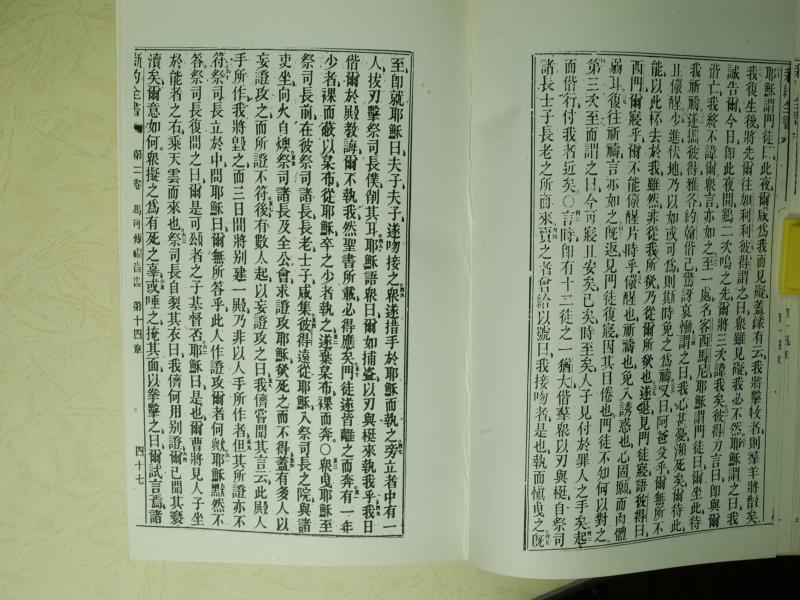 耶穌謂門徒曰此夜爾咸為我而見礙蓋錄有云我將擊牧者則羣羊將散矣
我復生後將先爾往加利利彼得謂之曰衆雖見礙我必不然耶穌謂之曰我
誠告爾今日卽此夜間鷄二次鳴之先爾將三次諱我矣彼得力言曰卽與爾
偕亡我終不諱爾衆言亦如之至一處名客西馬尼耶穌謂門徒曰爾坐此待
我祈禱遂攜彼得雅各約翰偕己驚訝哀慟謂之曰我心甚憂瀕死矣爾待此
且儆醒少進伏地乃以如或可為則斯時免之為禱又曰阿爸父乎爾無所不
能以此杯去於我雖然非從我所欲乃從爾所欲也遂返見門徒寢語彼得曰
西門爾寢乎爾不能儆醒片時乎儆醒也祈禱也免入誘惑也心固願而肉體
弱耳復往祈禱言亦如之旣返見門徒復寢因其目倦也門徒不知何以對之
第三次至而謂之曰今可寢且安矣已矣時至矣人子見付於罪人之手矣起
而偕行付我者近矣〇言時卽有十二徒之一猶大偕羣衆以刃與梃自祭司
諸長士子長老之所而來賣之者曾給以號曰我接吻者是也執而愼曳之旣
至卽就耶穌曰夫子夫子遂吻接之衆遂措手於耶穌而執之旁立者中有一
人拔刃擊祭司長僕削其耳耶穌語衆曰爾如捕盜以刃與梃來執我乎我日
偕爾於殿教誨爾不執我然聖書所載必得應矣門徒遂皆離之而奔有一年
少者裸而蔽以枲布從耶穌卒之少者執之遂棄枲布裸而奔〇衆曳耶穌至
祭司長前在彼祭司諸長長老士子咸集彼得遠從耶穌入祭司長之院與諸
吏坐向火自燠祭司諸長及全公會求證攻耶穌欲死之而不得蓋有多人以
妄證攻之而所證不符後有數人起以妄證攻之曰我儕嘗聞其言云此殿人
手所作我將毀之而三日間將別建一殿乃非以人手所作者但其所證亦不
符祭司長立於中問耶穌曰爾無所答乎此人作證攻爾者何歟耶穌默然不
答祭司長復問之曰爾是可頌者之子基督否耶穌曰是也爾曹將見人子坐
於能者之右乘天雲而來也祭司長自裂其衣曰我儕何用別證爾已聞其褻
瀆矣爾意如何衆擬之為有死之辜或唾之掩其面以拳擊之曰爾試言焉諸
新約全書 第二卷 馬可傳福音書 第十四章 四十七